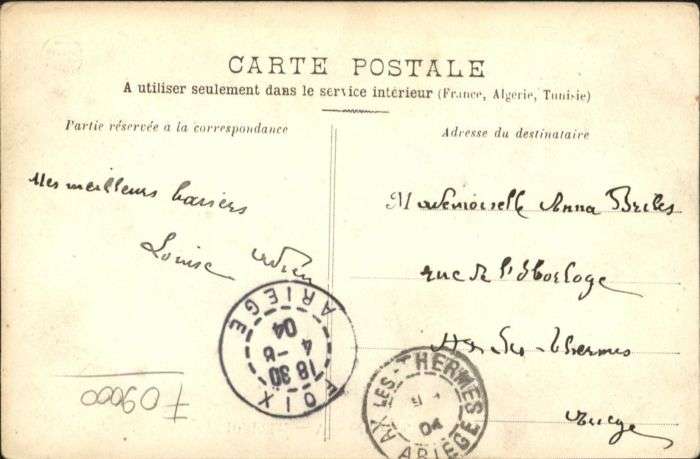 CARTE POSTALE
A utiliser seulement dans le service intérieur (France, Algerie, Tunisie)
Partie réservée à la correspondance
Adresse du destinataire
Mes meilleurs baisers
Louise
Mademoiselle Anna
rue de l'Horloge
Ax-les-Thermes
Ariège
FOIX
ARIEGE
18 30
4 - 8
04
AX-LES-THERMES
04
ARIEGE
F 09000